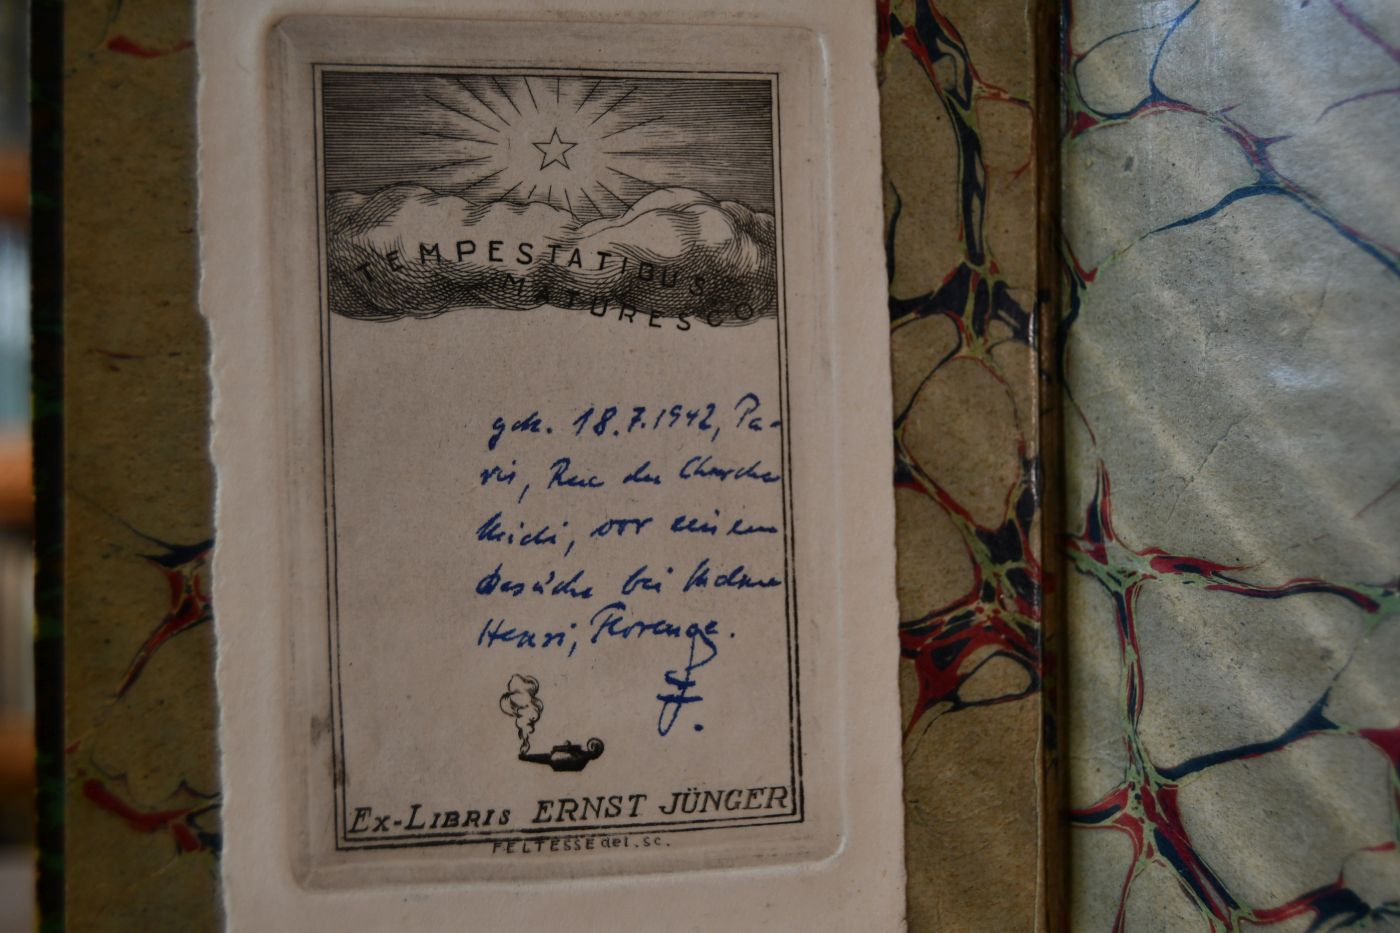 TEMPESTATIBUS
MATURESCO
gek. 18.7.1942, Pa-
ris, Rue du Cherche
Midi, vor einem
Besuche bei Madame
Henri, Florence.
J.
EX-LIBRIS ERNST JÜNGER
FELTESSE del. sc.